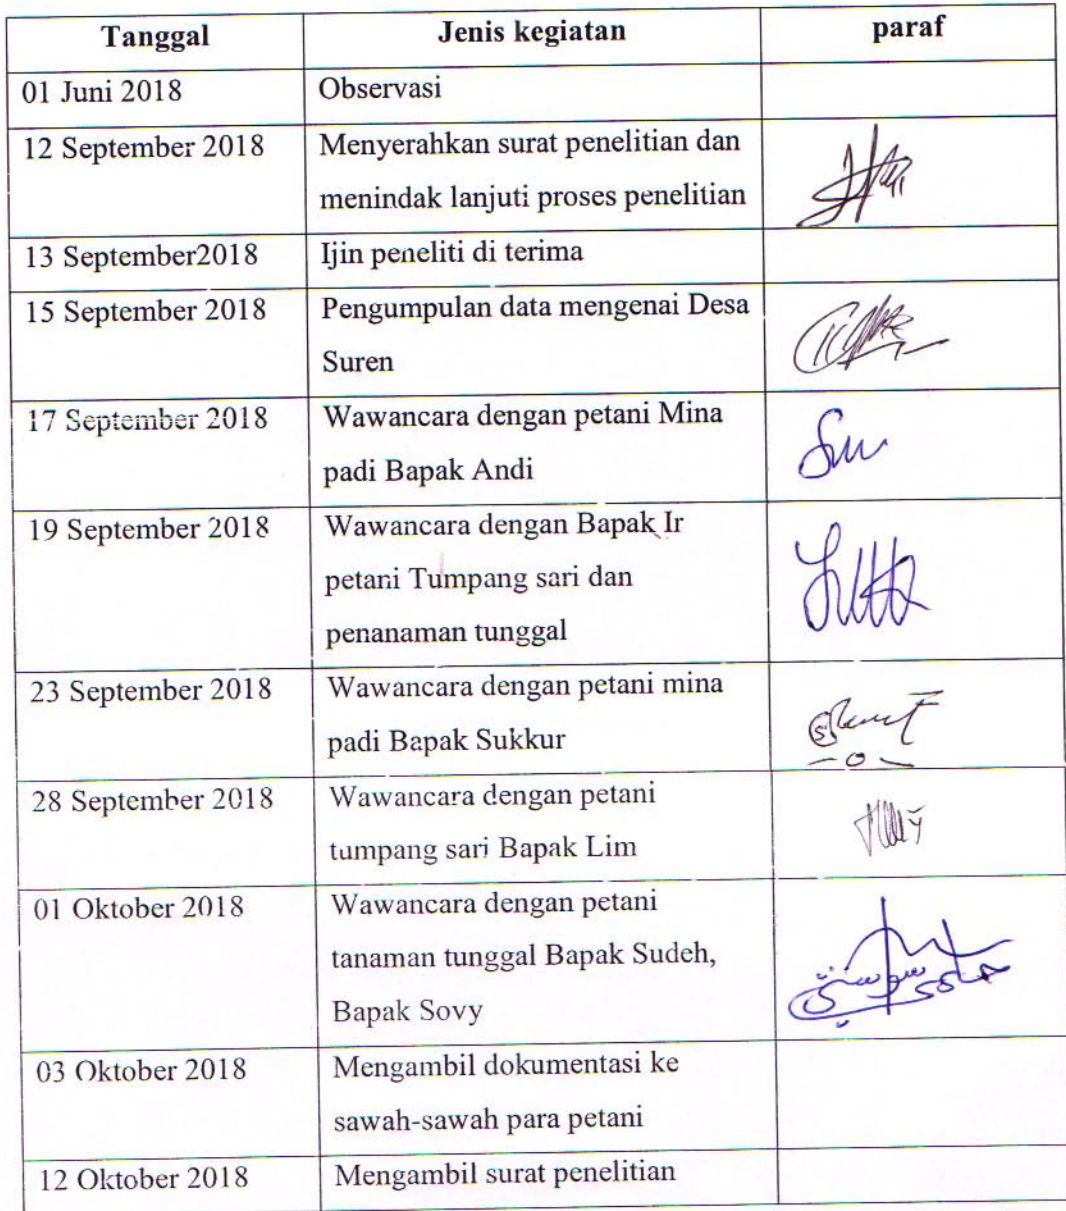 Tanggal Jenis kegiatan paraf
01 Juni 2018 Observasi
12 September 2018 Menyerahkan surat penelitian dan
menindak lanjuti proses penelitian
13 September2018 Ijin peneliti di terima
15 September 2018 Pengumpulan data mengenai Desa
Suren
17 September 2018 Wawancara dengan petani Mina
padi Bapak Andi
19 September 2018 Wawancara dengan Bapak Ir
petani Tumpang sari dan
penanaman tunggal
23 September 2018 Wawancara dengan petani mina
padi Bapak Sukkur
28 September 2018 Wawancara dengan petani
tumpang sari Bapak Lim
01 Oktober 2018 Wawancara dengan petani
tanaman tunggal Bapak Sudeh,
Bapak Sovy
03 Oktober 2018 Mengambil dokumentasi ke
sawah-sawah para petani
12 Oktober 2018 Mengambil surat penelitian